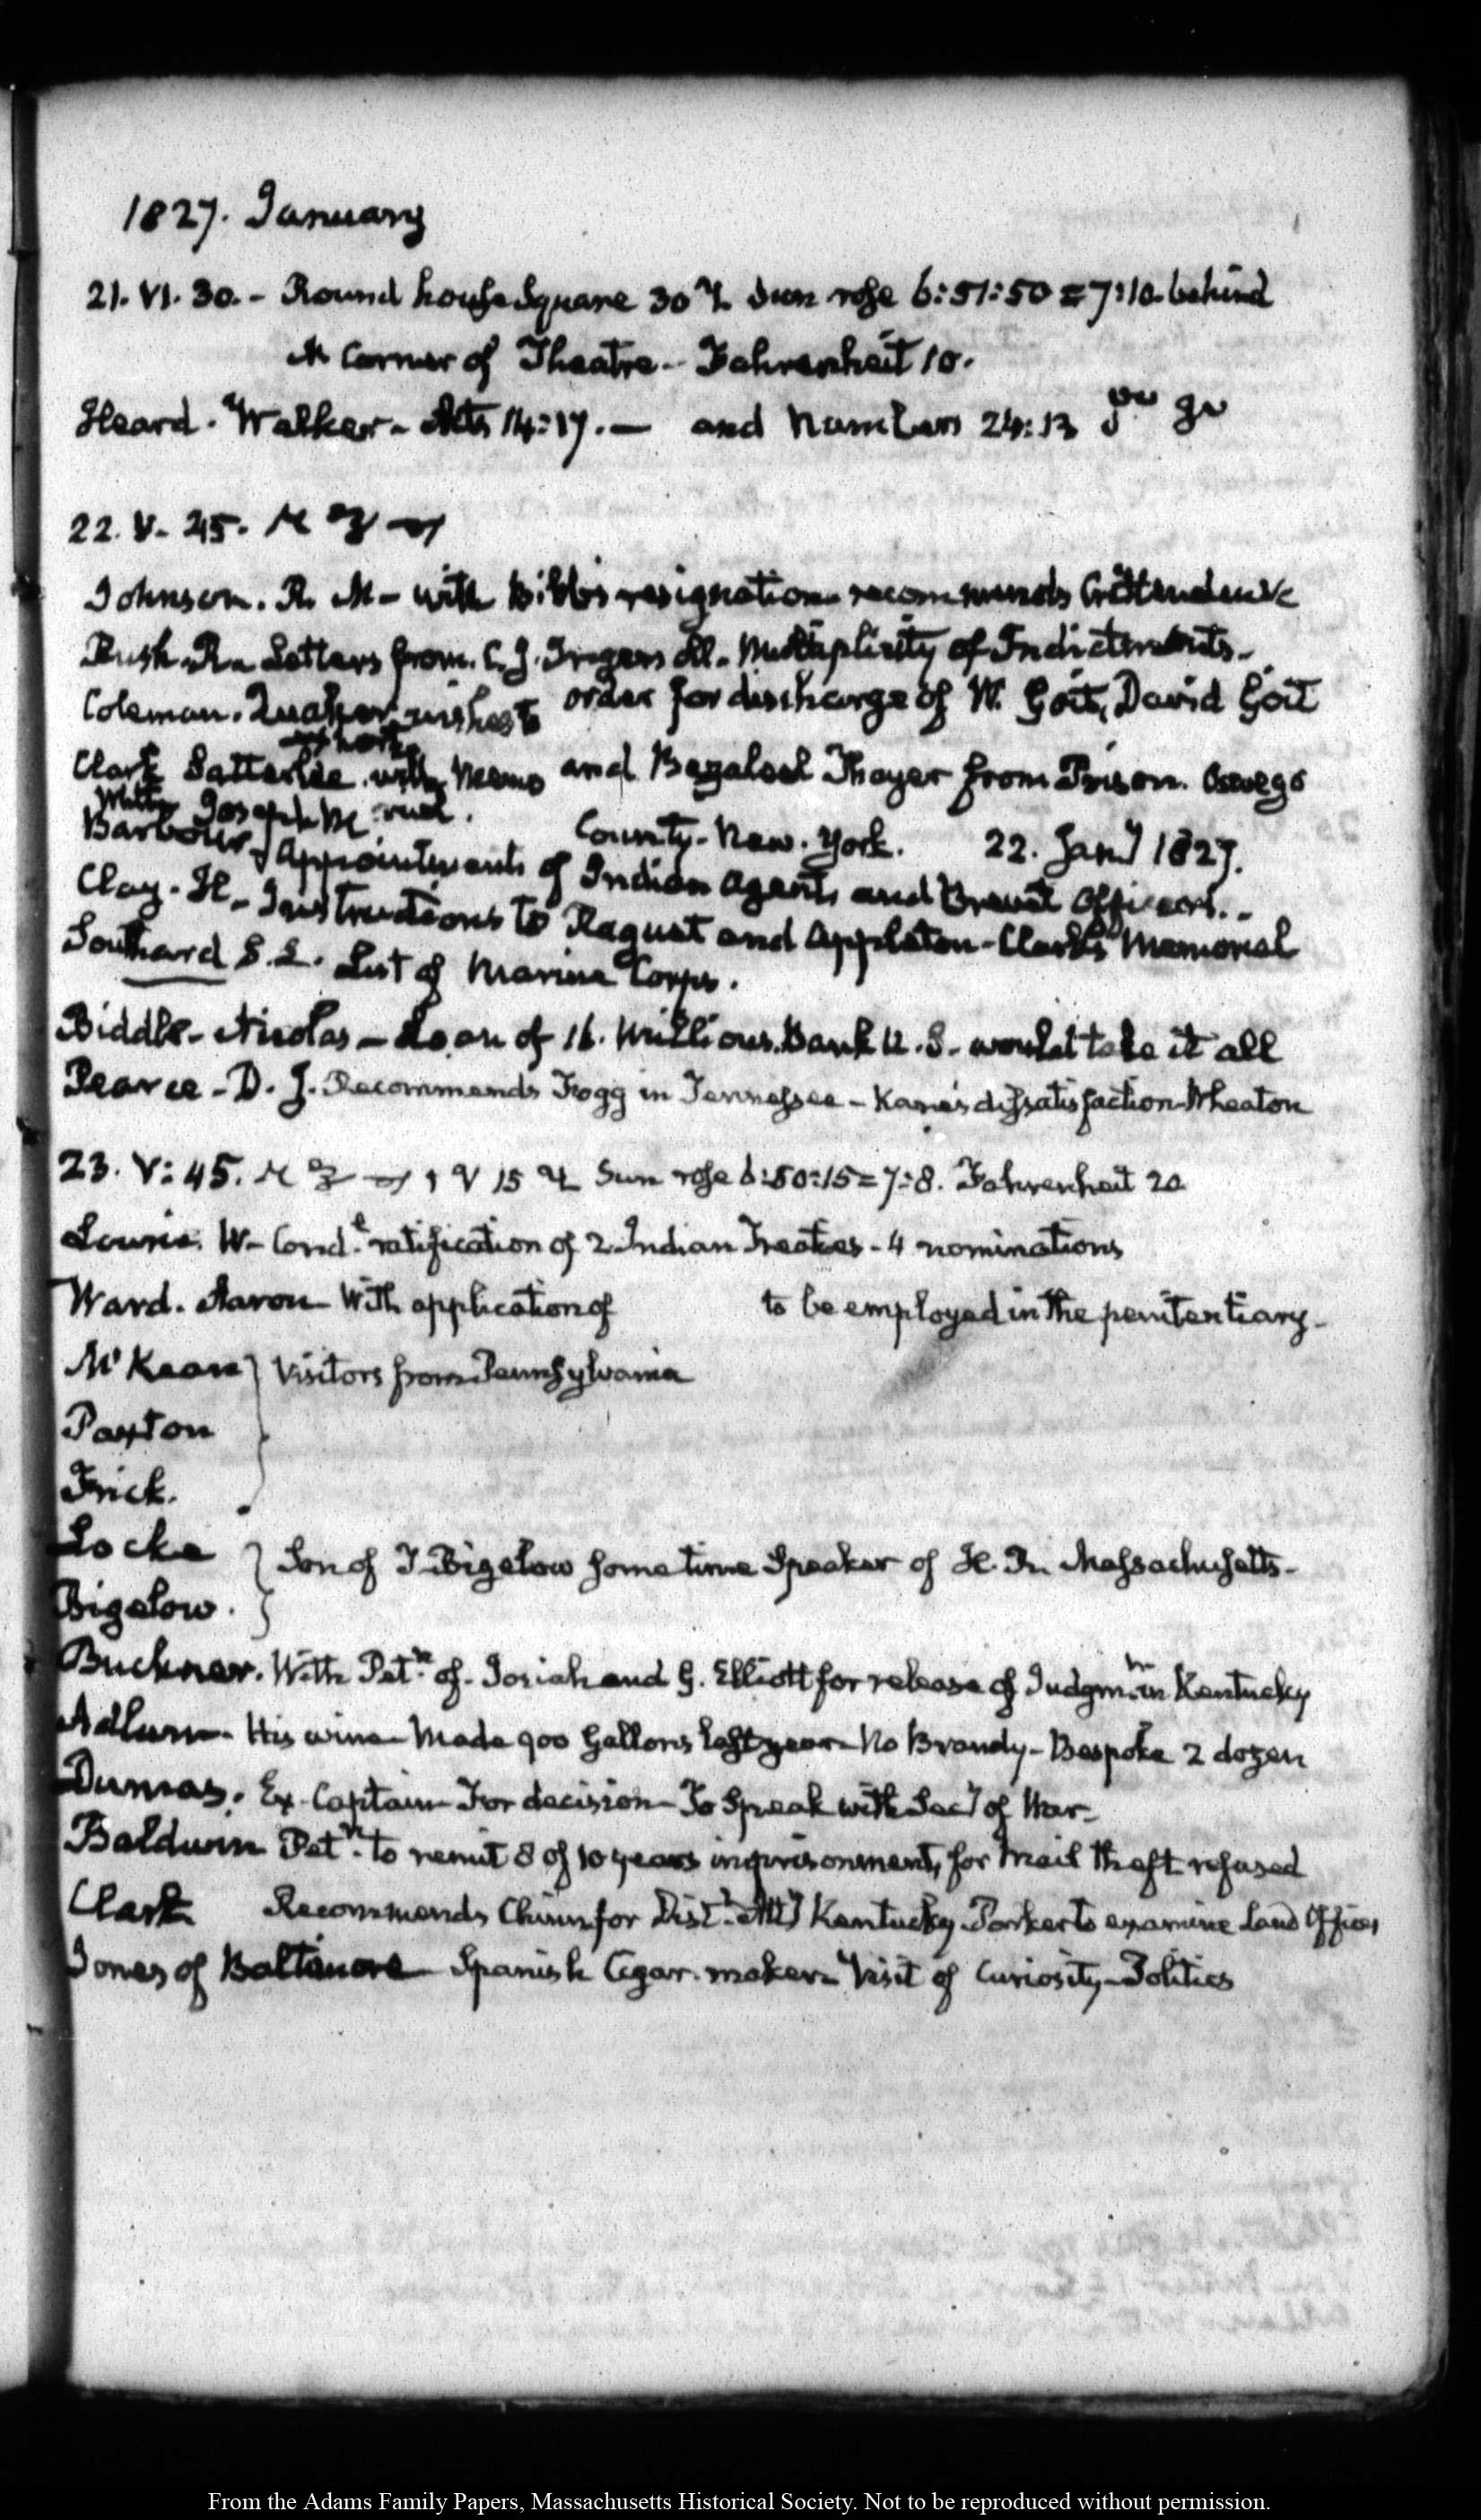 1827. January
21. VI. 30. - Round house Square 30 Sun rose 6:51:50 = 7:10. behind
N Corner of Theatre - Fahrenheit 10.
Heard. Walker - Acts 14:17. — and Numbers 24:13
22. V. 45.
Johnson. R. M - with Bibb's resignation recommends Crittenden &c
Rush. R - Letters from C. J. Ingersoll. Multiplicity of Indictments -
Coleman. Quaker, wishes to order for discharge of W. Goit, David Goit
Clark Satterlee with Memo and Bezaleel Thayer from Prison. Oswego
Joseph County - New-York. 22. Jany 1827.
Barbour. Appointments of Indian Agents and Brevet Officers. -
Clay. H - Instructions to Raguet and Appleton - Clark's Memorial
Southard S. L. List of Marine Corps.
Biddle - Nicolas - Loan of 16. Millions. Bank U. S. would take it all
Pearce - D. J. Recommends Fogg in Tennessee - Kane's dissatisfaction - Wheaton
23. V: 45. Sun rose 6:50:15 = 7:8. Fahrenheit 20
Lowrie. W - Cond.l ratification of 2 Indian Treaties - 4 nominations
Ward. Aaron With application of to be employed in the penitentiary -
McKean } Visitors from Pennsylvania
Paxton
Frick.
Locke } Son of T. Bigelow sometime Speaker of H. R. Massachusetts -
Bigelow.
Buckner. With Pet.n of Josiah and G. Elliott for release of Judgm.t in Kentucky
Adlum - His wine - Made 900 Gallons last year - No Brandy - Bespoke 2 dozen
Dumas. Ex-Captain - For decision - To speak with Secy of War -
Baldwin Pet.n to remit 8 of 10 years imprisonment, for Mail theft refused
Clark Recommends Chinn for Dist.t Atty Kentucky - Parker to examine Land Offices
Jones of Baltimore - Spanish Cigar-maker - Visit of Curiosity - Politics
From the Adams Family Papers, Massachusetts Historical Society. Not to be reproduced without permission.